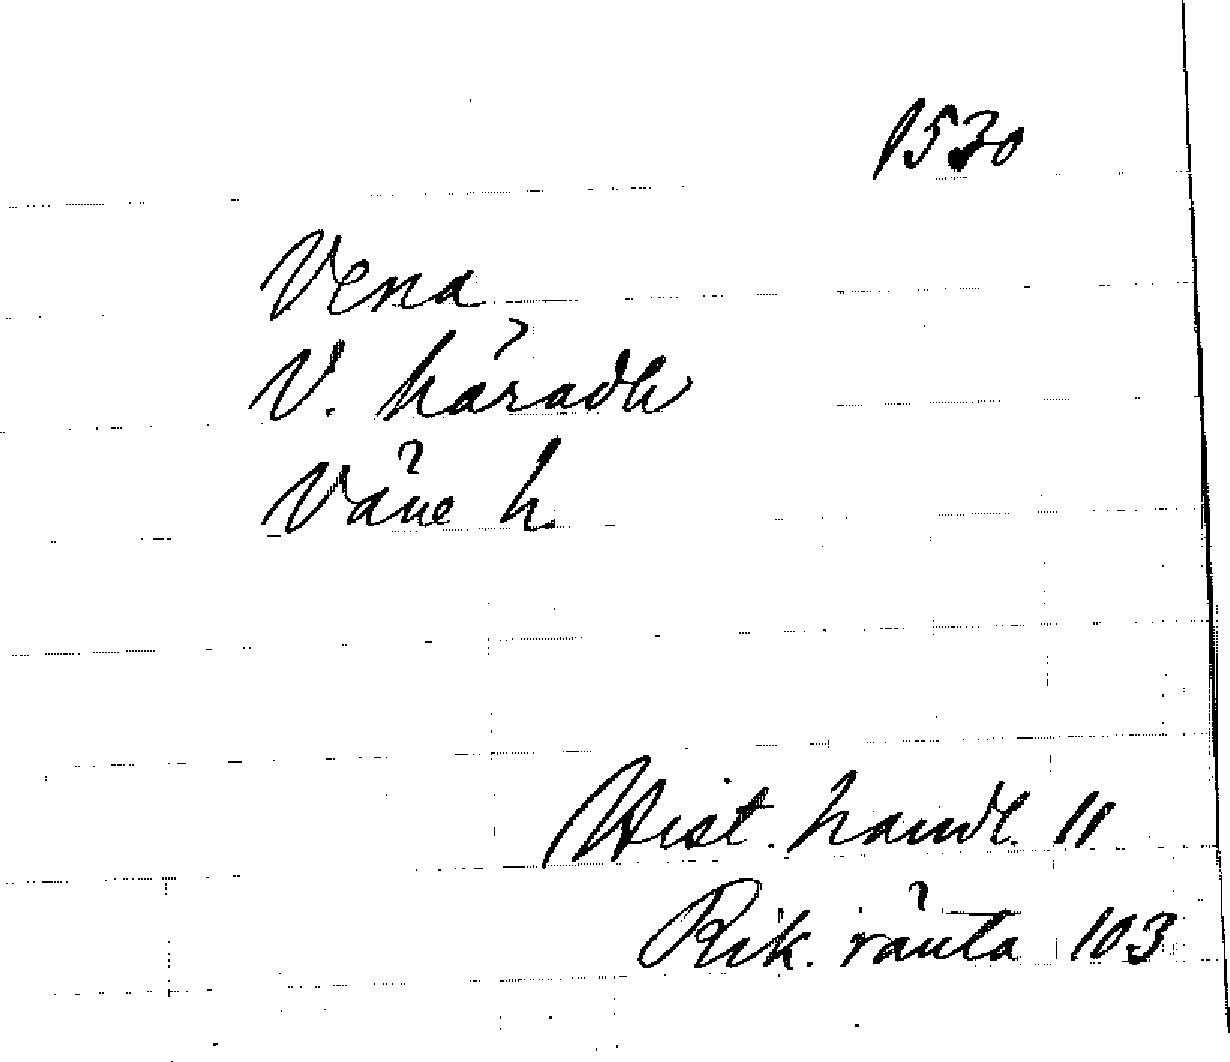 1530
Vena
V. häradh
Väne h
Hist. handl. 11
Rik. ränta 103